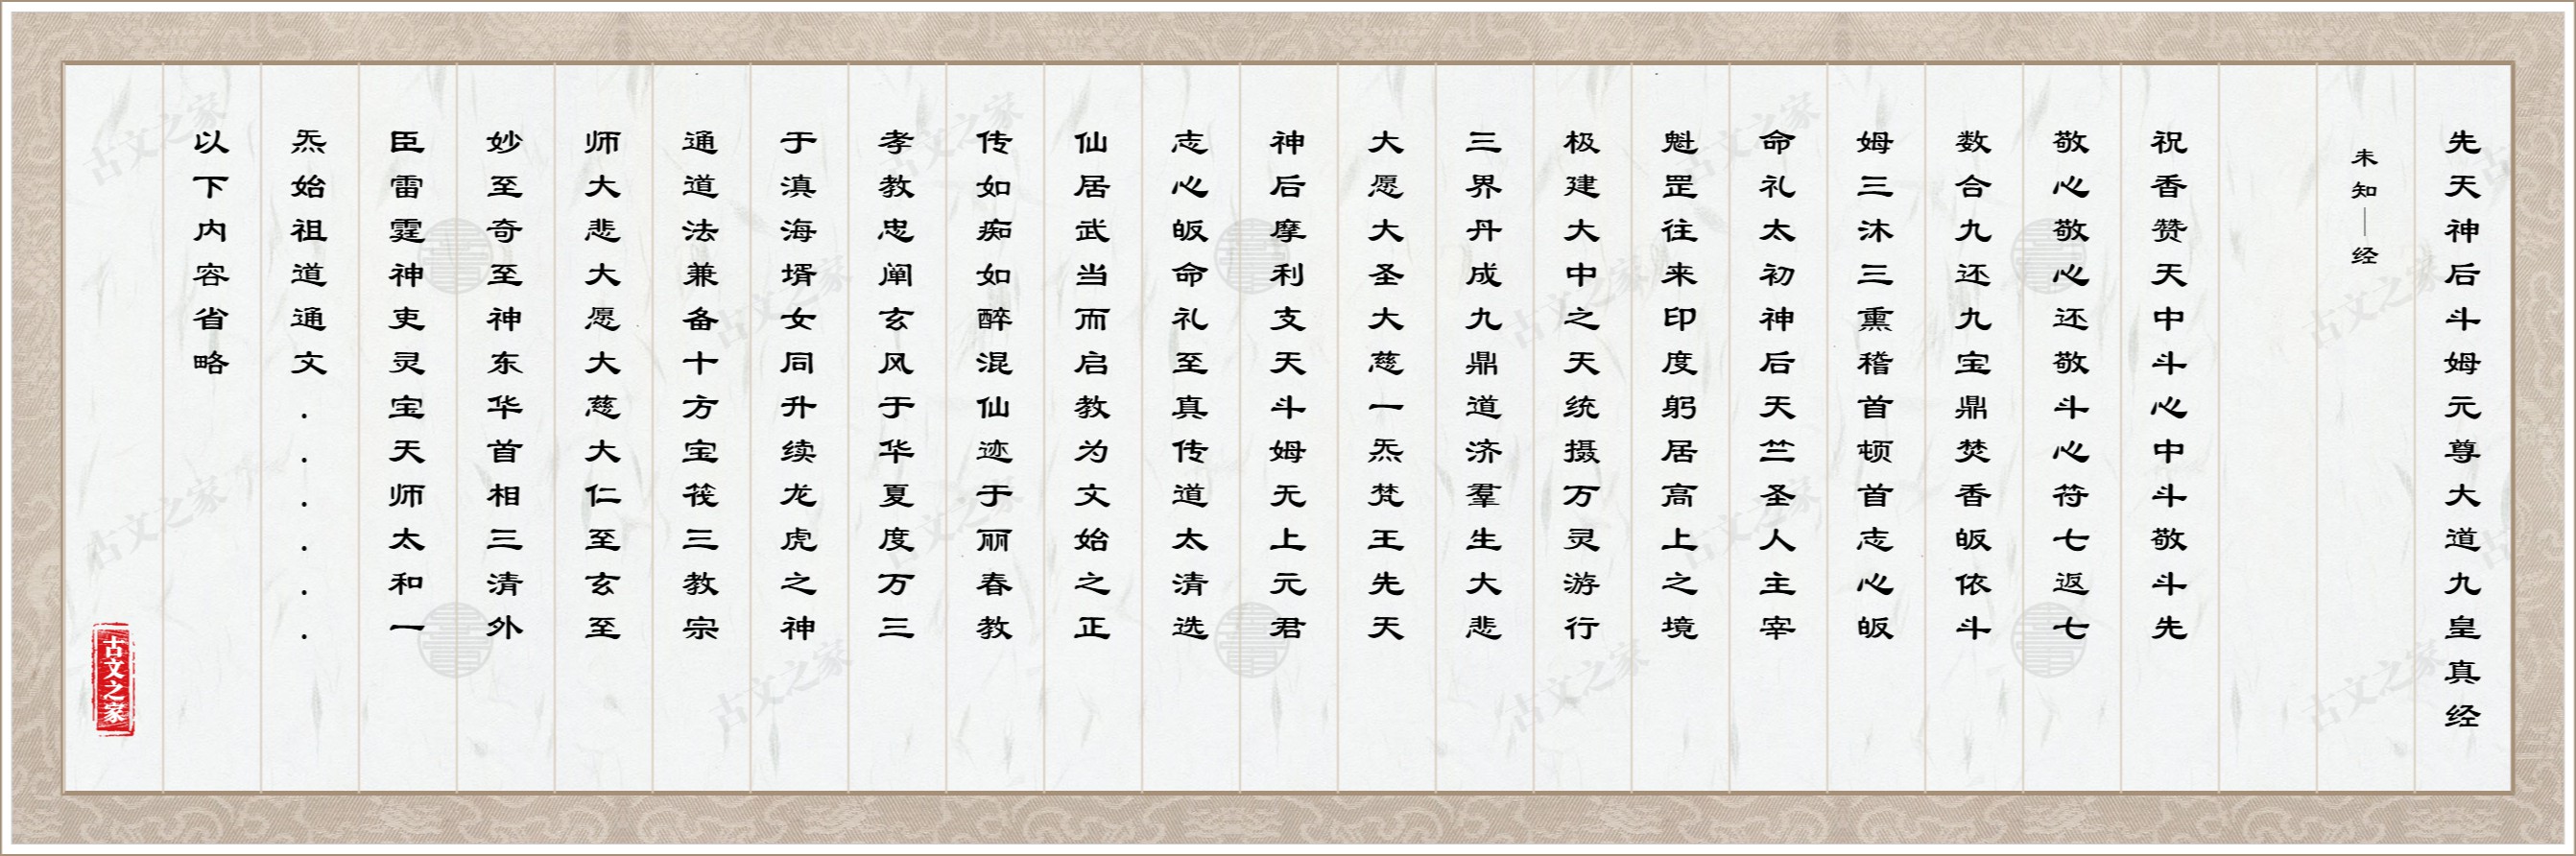 先天神后斗姆元尊大道九皇真经
未知—经
祝香赞天中斗心中斗敬斗先
敬心敬心还敬斗心符七返七
数合九还九宝鼎焚香皈依斗
姆三沐三熏稽首顿首志心皈
命礼太初神后天竺圣人主宰
魁罡往来印度躬居高上之境
极建大中之天统摄万灵游行
三界丹成九鼎道济羣生大悲
大愿大圣大慈一炁梵王先天
神后摩利支天斗姆无上元君
志心皈命礼至真传道太清选
仙居武当而启教为文始之正
传如痴如醉混仙迹于丽春教
孝教忠阐玄风于华夏度万三
于滇海壻女同升续龙虎之神
通道法兼备十方宝筏三教宗
师大悲大愿大慈大仁至玄至
妙至奇至神东华首相三清外
臣雷霆神吏灵宝天师太和一
炁始祖道通文......
以下内容省略
古文之家